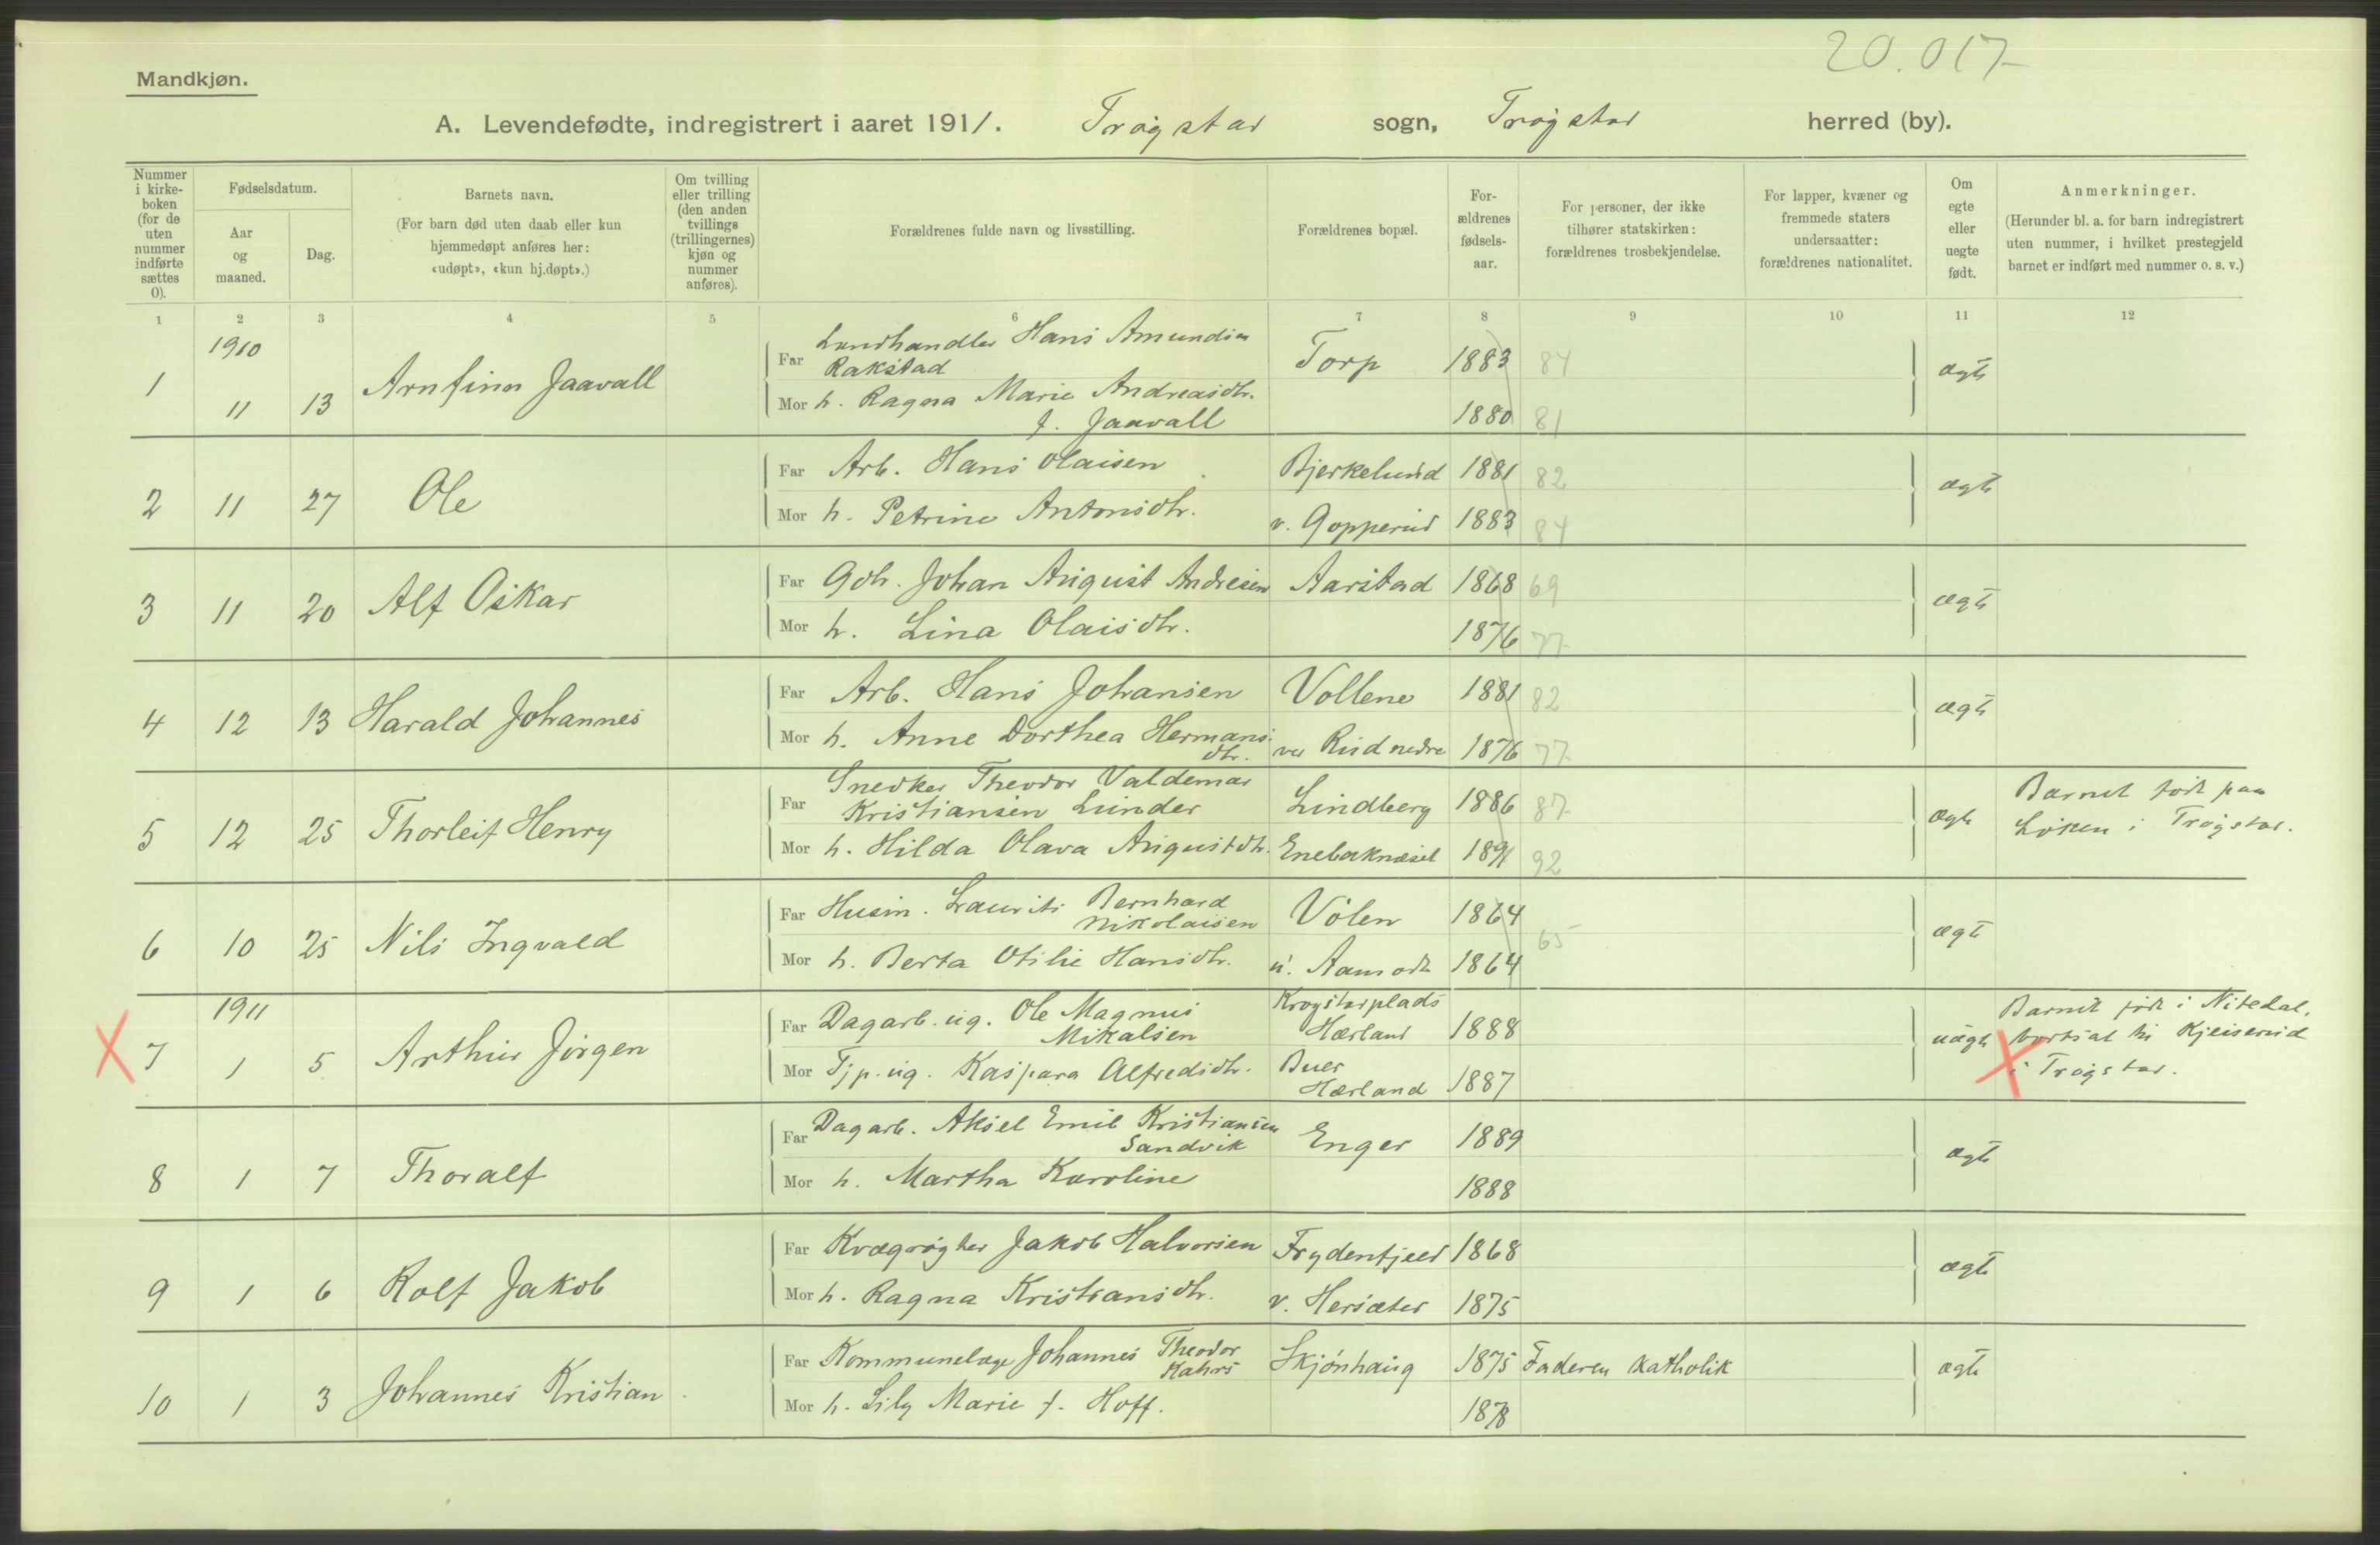 20.017
Mandkjøn.
A. Levendefødte, indregistrert i aaret 1911. Trøgstad sogn, Trøgstad herred (by).
Nummer i kirke-boken (for de uten nummer indførte sættes 0).
Fødselsdatum.
Aar og maaned.
Dag.
Barnets navn.
(For barn død uten daab eller kun hjemmedøpt anføres her: «udøpt», «kun hj.døpt».)
Om tvilling eller trilling (den anden tvillings (trillingernes) kjøn og nummer anføres).
Forældrenes fulde navn og livsstilling.
Forældrenes bopæl.
For-ældrenes fødsels-aar.
For personer, der ikke tilhører statskirken: forældrenes trosbekjendelse.
For lapper, kvæner og fremmede staters undersaatter: forældrenes nationalitet.
Om egte eller uegte født.
Anmerkninger.
(Herunder bl. a. for barn indregistrert uten nummer, i hvilket prestegjeld barnet er indført med nummer o. s. v.)
1 2 3 4 5 6 7 8 9 10 11 12
1910
1 11 13 Arnfinn Jaavall
Far Landhandler Hans Amundsen Rakstad Torp 1883 84 ægte
Mor h. Ragna Marie Andreasdtr. f. Jaavall 1880 81
2 11 27 Ole
Far Arb. Hans Olaisen Bjerkelund 1881 82 ægte
Mor h. Petrine Antonsdtr. v. Gopperud 1883 84
3 11 20 Alf Oskar
Far Gdbr. Johan August Andresen Aarstad 1868 69 ægte
Mor h. Lina Olaisdtr. 1876 77
4 12 13 Harald Johannes
Far Arb. Hans Johansen Vollene 1881 82 ægte
Mor h. Anne Dorthea Hermansdtr. ve Rud nedre 1876 77
5 12 25 Thorleif Henry
Far Snedker Theodor Valdemar Kristiansen Lunder Lindberg 1886 87 ægte Barnet født paa Løken i Trøgstad.
Mor h. Hilda Olava Augustdtr. Enebaknæset 1891 92
6 10 25 Nils Ingvald
Far Husm. Laurits Bernhard Nikolaisen Volen 1864 65 ægte
Mor h. Berta Otilie Hansdtr. u. Aamodt 1864
1911
7 1 5 Arthur Jørgen
Far Dagarb. ug. Ole Magnus Mikalsen Krogstadplads Hærland 1888 uægte Barnet født i Nitedal, bortsat til Kjeiserud i Trøgstad.
Mor Tjp. ug. Kaspara Alfredsdtr. Buer Hærland 1887
8 1 7 Thoralf
Far Dagarb. Aksel Emil Kristiansen Sandvik Enger 1889 ægte
Mor h. Martha Karoline 1888
9 1 6 Rolf Jakob
Far Kvægrøgter Jakob Halvorsen Frydenfjeld 1868 ægte
Mor h. Ragna Kristiansdtr. v. Hersæter 1875
10 1 3 Johannes Kristian
Far Kommunelæge Johannes Theodor Kahrs Skjønhaug 1875 Faderen katholik ægte
Mor h. Lily Marie f. Hoff. 1878